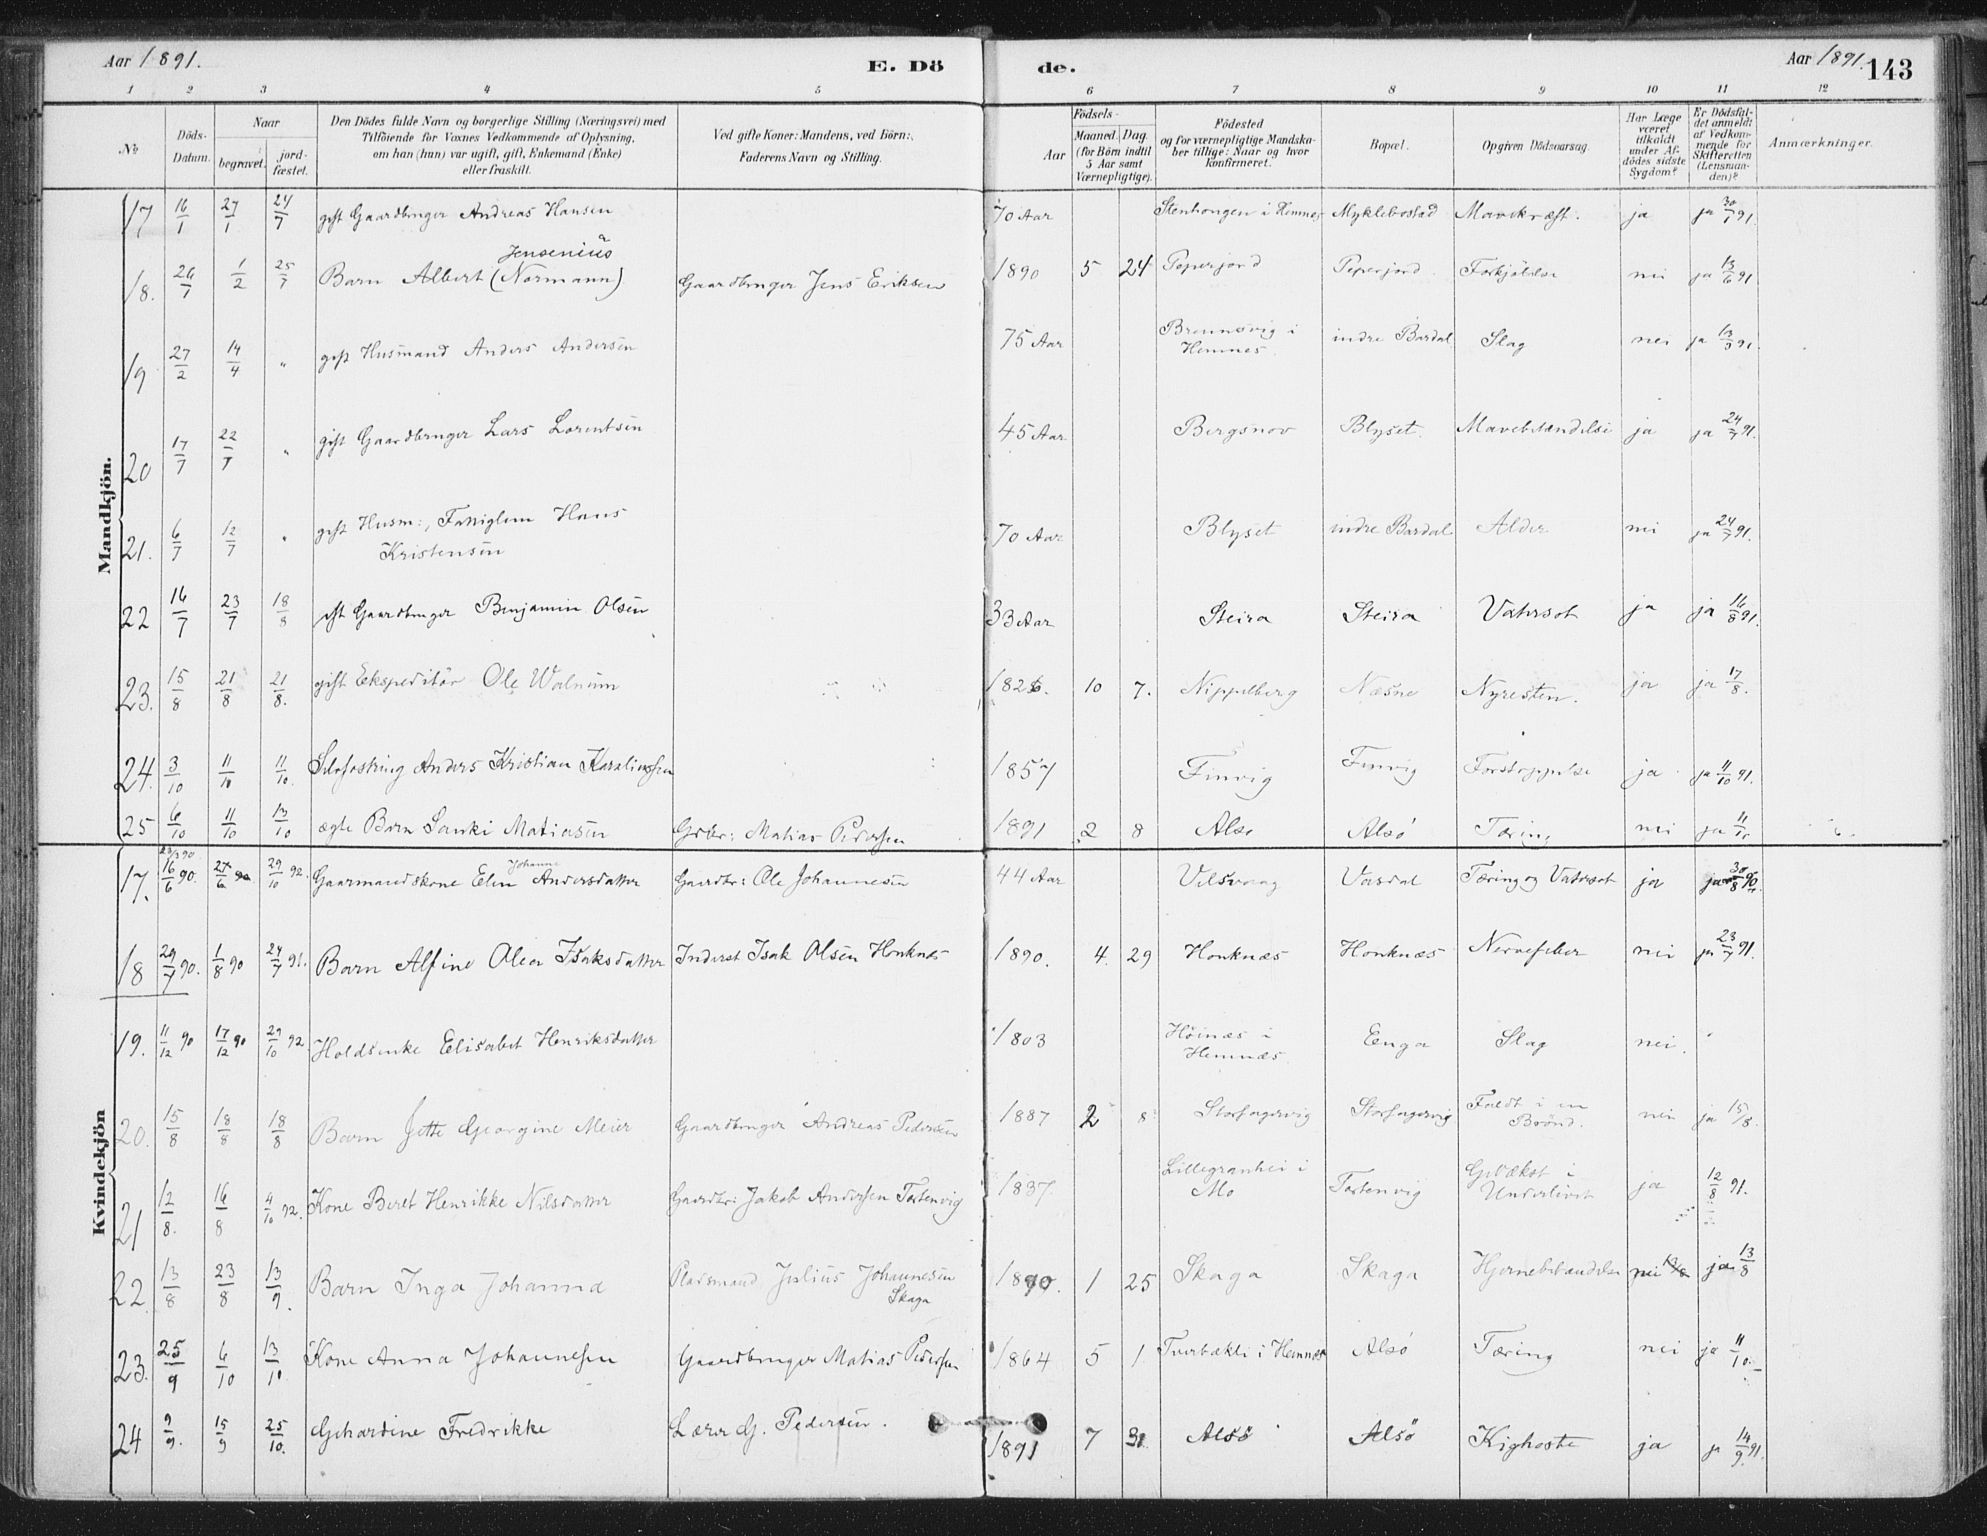 Aar 1891.
E. Döde.
Aar 1891.
143
1 2 3 4 5 6 7 8 9 10 11 12
No
Döds-Datum.
Naar
begravet.
jord-fæstet.
Den Dödes fulde Navn og borgerlige Stilling (Næringsvei) med
Tilföiende for Voxnes Vedkommende af Oplysning,
om han (hun) var ugift, gift, Enkemand (Enke)
eller fraskilt.
Ved gifte Koner: Mandens, ved Börn:
Faderens Navn og Stilling.
Födsels-
Aar
Maaned. Dag.
(for Börn indtil
5 Aar samt
Værnepligtige).
Födested
og for værnepligtige Mandska-
ber tillige: Naar og hvor
konfirmeret.
Bopæl.
Opgiven Dödsaarsag.
Har Læge
været
tilkaldt
under Af-
dödes sidste
Sygdom?
Er Dödsfal-
det anmeldt
af Vedkom-
mende for
Skifteretten
(Lensman-
den)?
Anmærkninger.
Mandkjön.
17 16/1 27/1 24/7 gift Gaardbruger Andreas Hansen 70 Aar Stenhougen i Hemnes Myklebostad Mavekræft. ja ja 30/1 91.
Jensenius
18. 26/7 1/2 25/7 Barn Albert (Normann) Gaardbruger Jens Eriksen 1890 5 24 Peperjord Peperjord Forkjölelse nei ja 13/6 91
19 27/2 14/4 " gift Husmand Anders Andersen 75 Aar Brennsvig i Hemnes. indre Bardal Slag nei ja 13/3 91.
20 17/7 22/7 " gift Gaardbruger Lars Lorentsen 45 Aar Bergsnov Blyset. Mavebetændelse ja ja 24/7 91.
21. 6/7 12/7 " gift Husm:, Fattiglem Hans Kristensen 70 Aar Blyset indre Bardal Alder nei ja 24/7 91.
22 16/7 23/7 18/8 gift Gaardbruger Benjamin Olsen 33 Aar Steira Steira Vatersot ja ja 16/8 91.
23. 15/8 21/8 21/8. gift Ekspeditör Ole Walnum 1826. 10 7. Nippelberg Næsne Nyresten. ja ja 17/8.
24. 3/10 11/10 11/10. Anders Kristian Karolinssen 1857 Finvig Finvig Forstoppelse ja ja 11/10 91.
25 6/10 11/10 13/10 ægte Barn Sanki Matiasen Grbr: Matias Pedersen 1891 2 8 Alsö Alsö Tæring nei ja 11/10
Kvindekjön
17. 16/6 90. 27/6 90 29/10 92. Gaarmandskone Elen Johanne Andersdatter Gaardbr: Ole Johannesen 44 Aar Vilsvaag Vasdal Tæring og Vatersot ja ja 30/8 90.
18 29/7 90. 1/8 90 24/7 91. Barn Alfine Olea Isaksdatter Inderst Isak Olsen Honknæs 1890. 4. 29 Honknæs Honknæs Nervefeber nei ja 23/7 91.
19. 11/12 90 17/12 90 29/10 92 Holdsenke Elisabet Henriksdatter 1803 Höinæs i Hemnæs. Enga Slag nei.
20. 15/8 18/8 18/8 Barn Jette Georgine Meier Gaardbruger Andreas Pedersen 1887 2 8 Storfagervig Storfagervig Faldt i en Brönd. nei ja 15/8.
21 12/8. 16/8 4/10 92. Kone Beret Henrikke Nilsdatter Gaardbr: Jakob Andersen Tortenvig 1837. Lillegranhei i Mo Tortenvig Gevækst i Underlivet ja 12/8 91.
22. 13/8 23/8 13/9. Barn Inga Johanna Pladsmand Julius Johannesen Skaga 1890. 1 25 Skaga Skaga Hjernebetændelse nei ja 13/8
23. 25/9 6/10 13/10 Kone Anna Johannesen Gaardbruger Matias Pedersen 1864 5 1 Tverbækli i Hemnæs Alsö Tæring nei ja 11/10.
24 9/9. 15/9 25/10. Gehardine Fredrikke Lærer G. Pedersen. 1891 7 31. Alsö Alsö Kighoste ja ja 14/9. 91